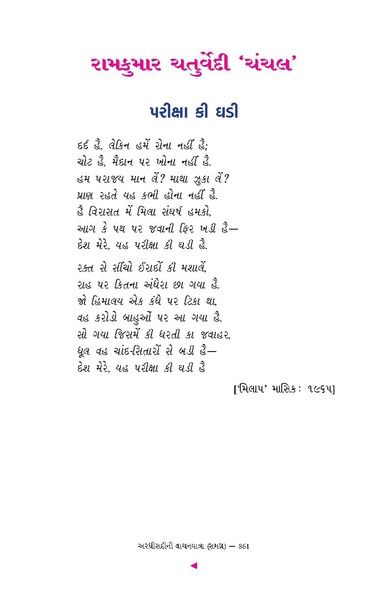 રામકુમાર ચતુર્વેદી ‘ચંચલ’
પરીક્ષા કી ઘડી
દર્દ હૈ, લેકિન હમેં રોના નહીં હૈ;
ચોટ હૈ, મૈદાન પર ખોના નહીં હૈ.
હમ પરાજય માન લેં? માથા ઝુકા લેં?
પ્રાણ રહતે યહ કભી હોના નહીં હૈ.
હૈ વિરાસત મેં મિલા સંઘર્ષ હમકો,
આગ કે પથ પર જવાની ફિર ખડી હૈ—
દેશ મેરે, યહ પરીક્ષા કી ઘડી હૈ.
રક્ત સે સીંચો ઈરાદોં કી મશાલેં,
રાહ પર કિતના અંધેરા છા ગયા હૈ.
જો હિમાલય એક કંધે પર ટિકા થા,
વહ કરોડો બાહુઓં પર આ ગયા હૈ.
સો ગયા જિસમેં કી ધરતી કા જવાહર,
ધૂલ વહ ચાંદ-સિતારોં સે બડી હૈ—
દેશ મેરે, યહ પરીક્ષા કી ઘડી હૈ
[‘મિલાપ’ માસિક: ૧૯૬૫]
અરધીસદીની વાચનયાત્રા (સમગ્ર) — 861